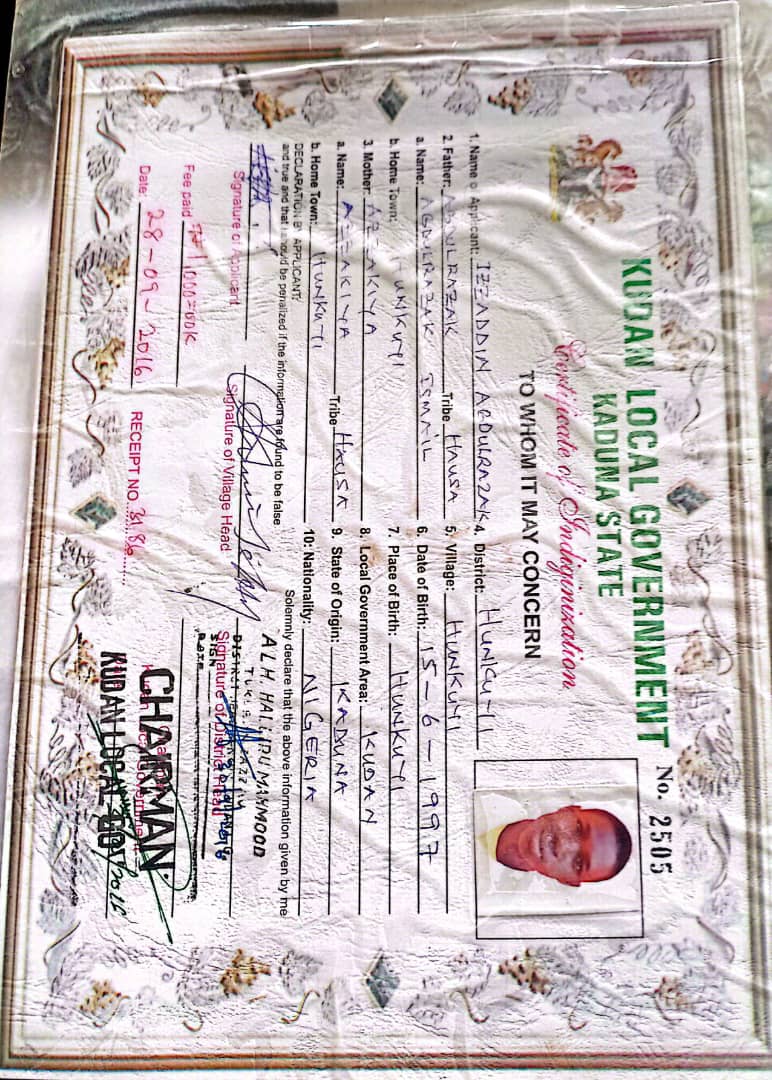 KUDAN LOCAL GOVERNMENT
KADUNA STATE
No. 2505
Certificate of Indiginization
TO WHOM IT MAY CONCERN
1. Name of Applicant: IZZADDIN ABDULRAZAK
2. Father: ABDULRAZAK Tribe HAUSA
a. Name: ABDULRAZAK ISMAIL
b. Home Town: HUNKUYI
3. Mother AZZAKIYA
a. Name: AZZAKIYA Tribe HAUSA
b. Home Town: HUNKUYI
4. District: HUNKUYI
5. Village: HUNKUYI
6. Date of Birth: 15-6-1997
7. Place of Birth: HUNKUYI
8. Local Government Area: KUDAN
9. State of Origin: KADUNA
10: Nationality: NIGERIA
DECLARATION BY APPLICANT: Solemnly declare that the above information given by me
and true and that I should be penalized if the information are found to be false
Signature of Applicant
Signature of Village Head
ALH. HALIRU MAHMOOD
Signature of District Head
Fee paid ₦1,000=00K
Date: 28-09-2016
RECEIPT NO. 3186
CHAIRMAN
KUDAN LOCAL GOVT